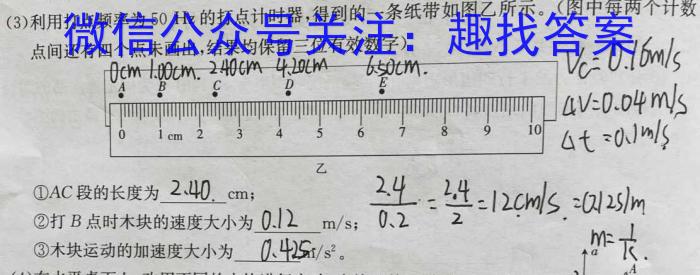 (3)利用打点频率为50 Hz的打点计时器,得到的一条纸带如图乙所示。(图中每两个计数
点间还有四个点未画出,结果均保留三位有效数字)
微信公众号关注：趣找答案
0cm 1.00cm. 2.40cm 4.20cm 6.50cm.
A B C D E
0 1 cm 2 3 4 5 6 7 8 9 10
乙
Vc=0.16m/s
ΔV=0.04m/s
Δt=0.1m/s
①AC段的长度为 2.40 cm;
②打B点时木块的速度大小为 0.12 m/s;
③木块运动的加速度大小为 0.425 m/s²。
2.4/0.2 = 2.4/2 = 12cm/s.
m=1/k.
a
A